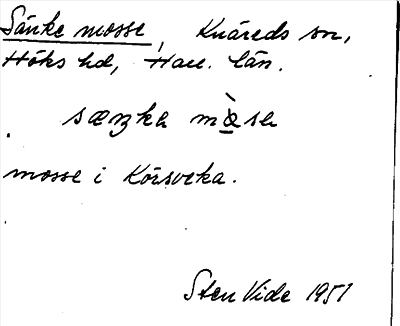 Sänke mosse, Knäreds sn,
Höks hd, Hall. län.
sæŋka mòsa
mosse i Körsveka.
Sten Vide 1951